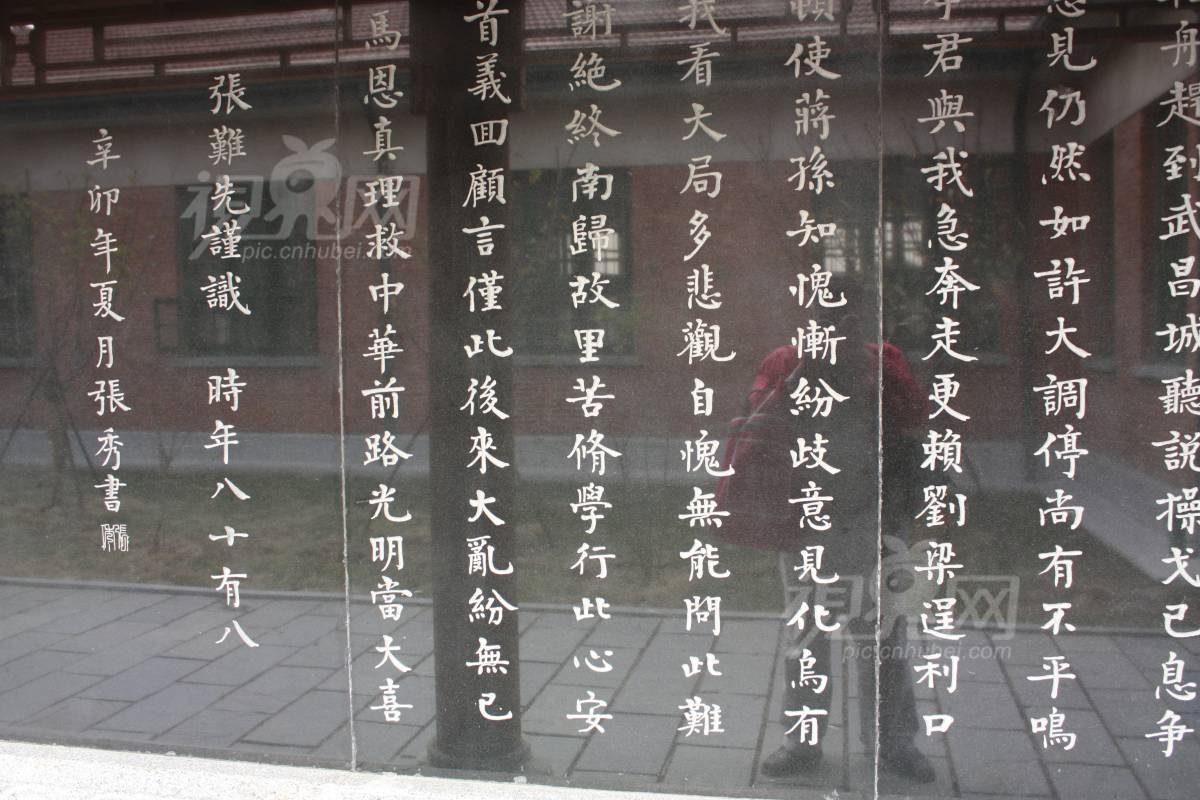 船趕到武昌城聽説操戈已息争
見仍然如許大調停尚有不平鳴
君與我急奔走更賴劉梁逞利口
賴使蔣孫知愧慚紛歧意見化烏有
我看大局多悲觀自愧無能問此難
謝絶終南歸故里苦脩學行此心安
首義回顧言僅此後來大亂紛無已
馬恩真理救中華前路光明當大喜
張難先謹識 時年八十有八
辛卯年夏月張秀書
視界网
pic.cnhubei.com
視界网
pic.cnhubei.com